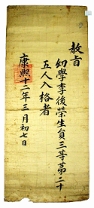 教旨
幼學李後榮生員三等第二十
五人入格者
康熙十二年三月初七日